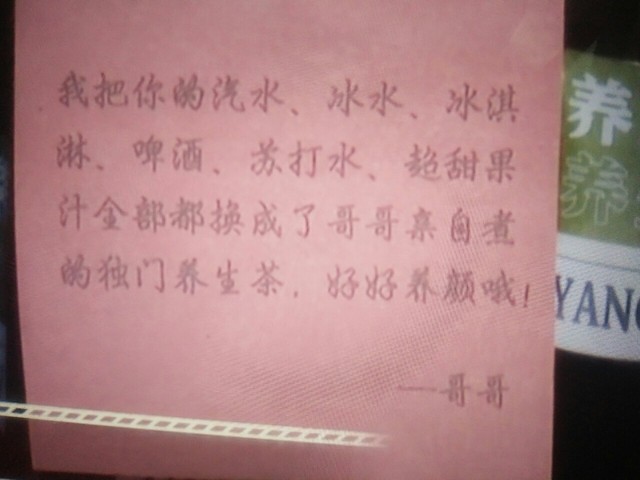 我把你的汽水、冰水、冰淇
淋、啤酒、苏打水、超甜果
汁全部都换成了哥哥亲自煮
的独门养生茶，好好养颜哦！
——哥哥
养
养
YANG